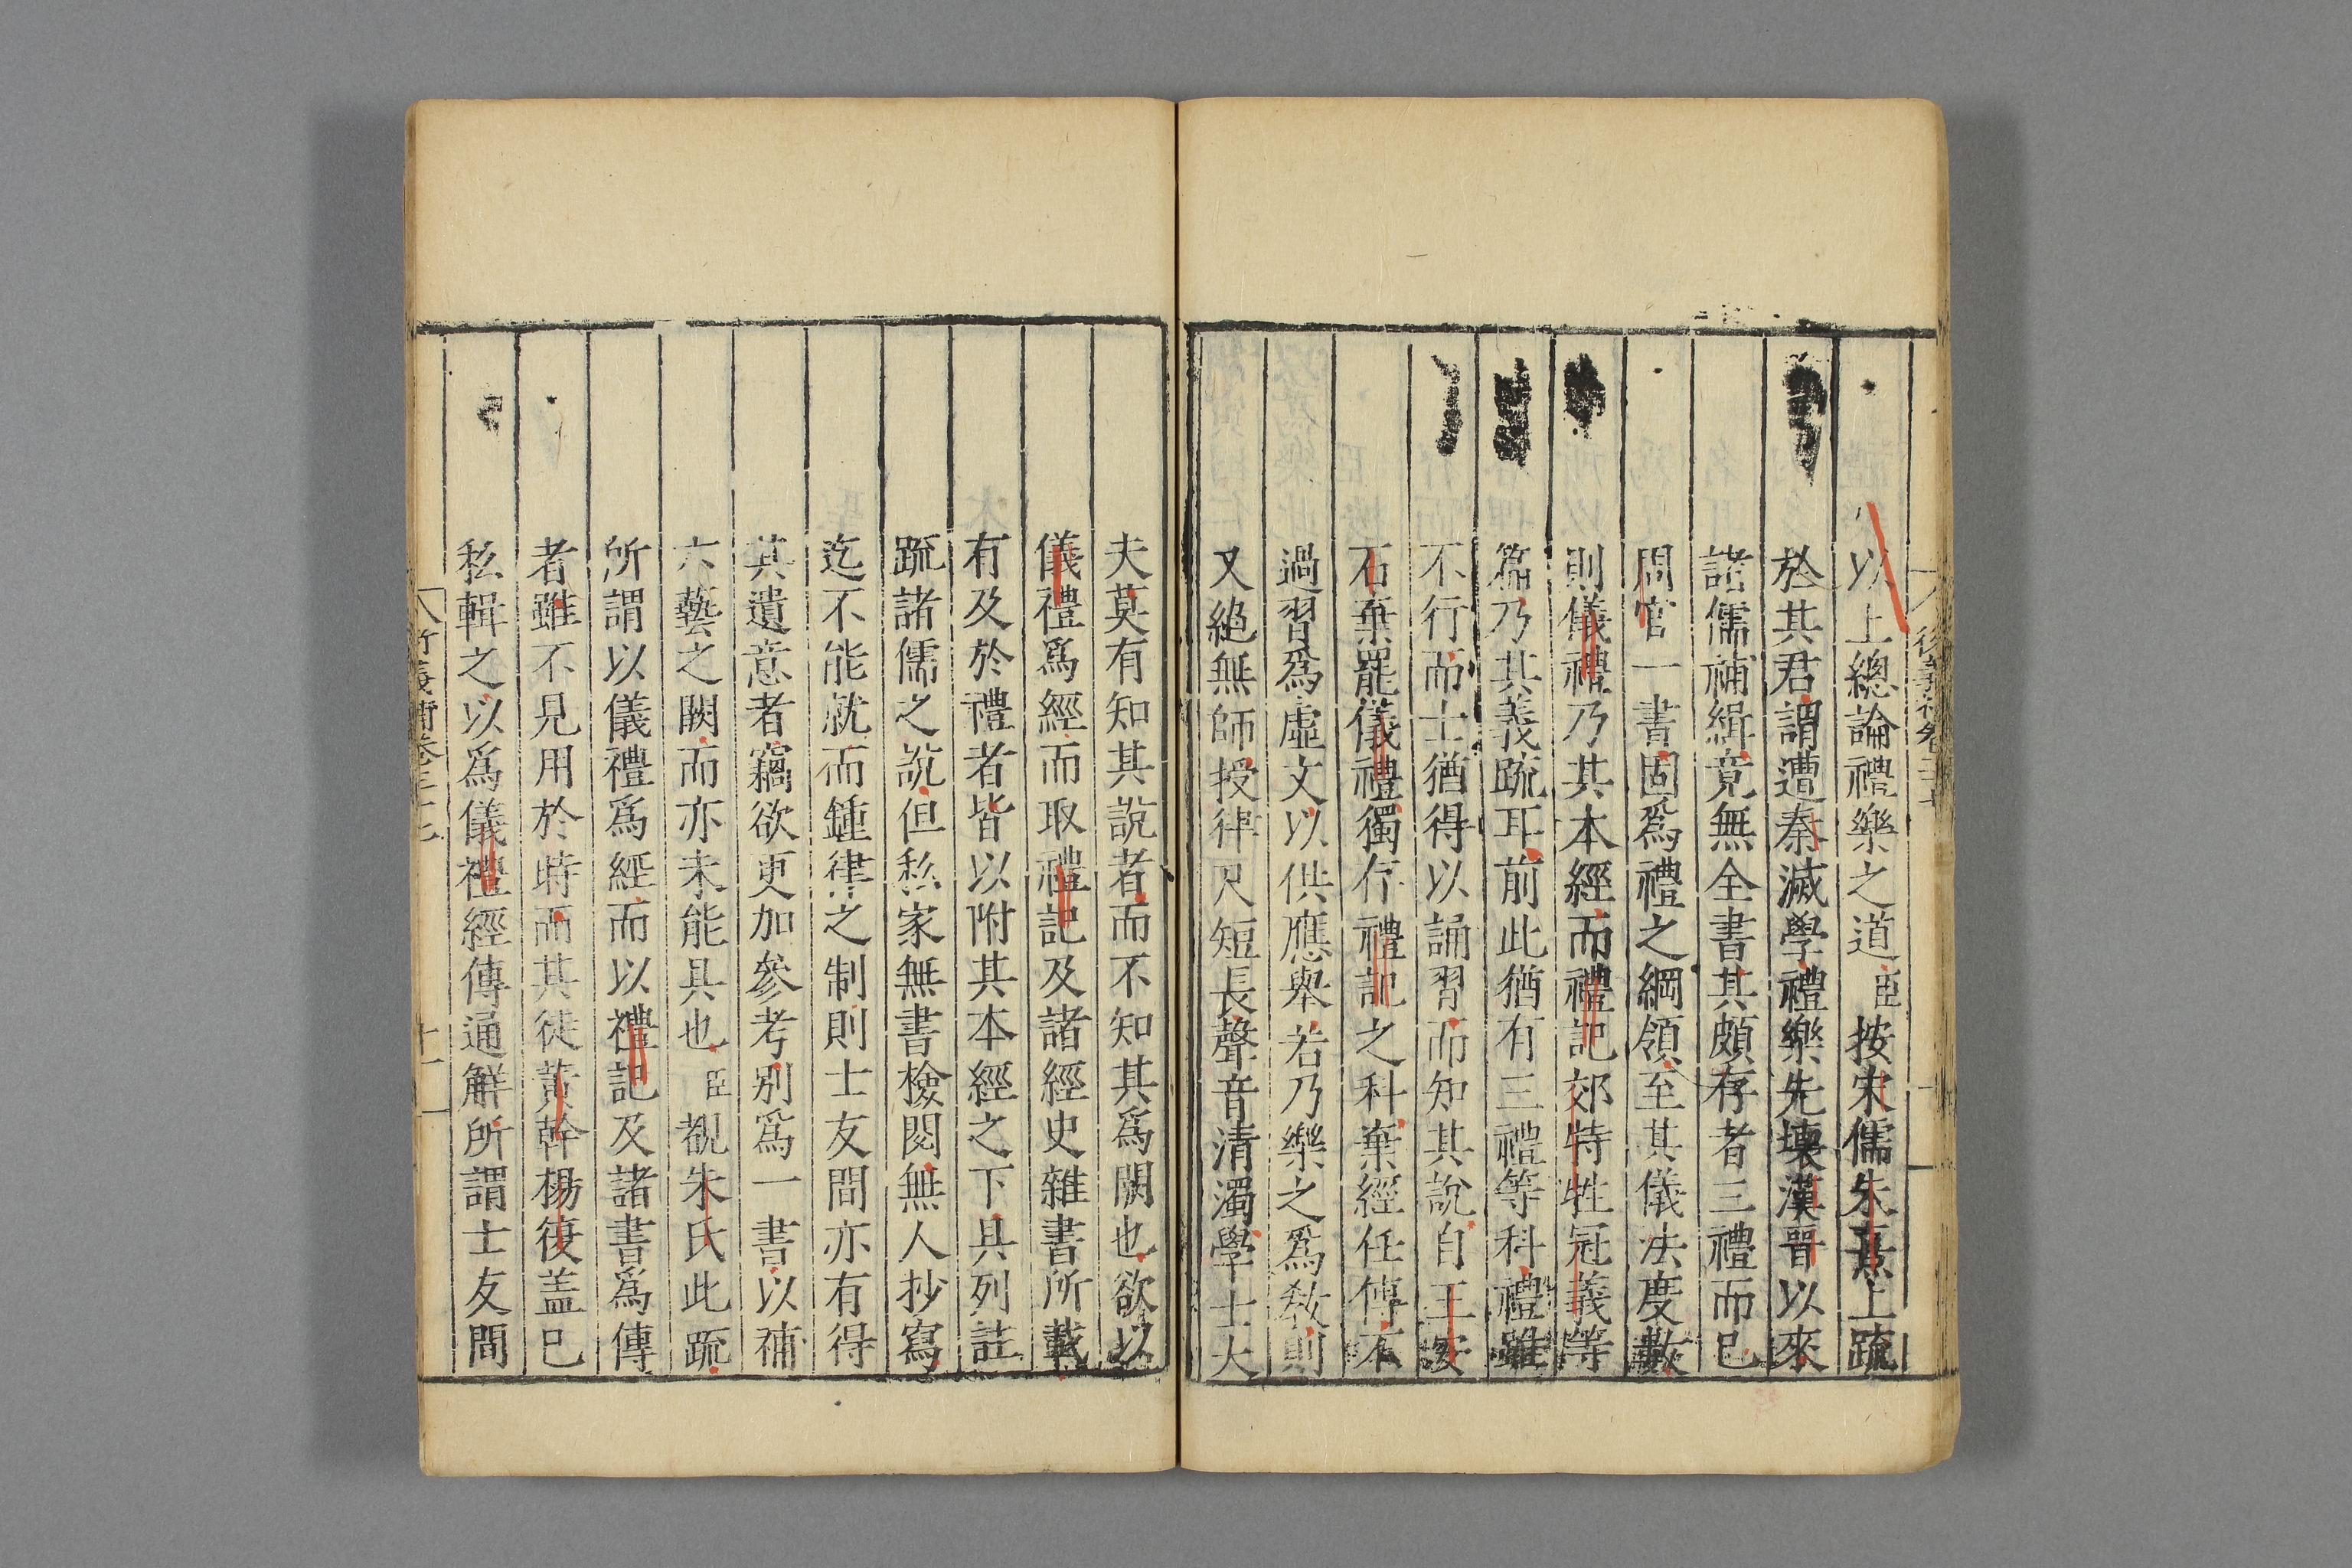 以上總論禮樂之道臣按宋儒朱熹上疏
於其君謂遭秦滅學禮樂先壞漢晉以來
諸儒補緝竟無全書其頗存者三禮而已
周官一書固爲禮之綱領至其儀法度數
則儀禮乃其本經而禮記郊特牲冠義等
篇乃其義疏耳前此猶有三禮等科禮雖
不行而士猶得以誦習而知其說自王安
石棄罷儀禮獨存禮記之科棄經任傳不
過習爲虛文以供應舉若乃樂之爲敎則
又絕無師授律尺短長聲音清濁學士大
夫莫有知其說者而不知其爲闕也欲以
儀禮爲經而取禮記及諸經史雜書所載
有及於禮者皆以附其本經之下具列註
疏諸儒之說但私家無書檢閱無人抄寫
迄不能就而鍾律之制則士友間亦有得
其遺意者竊欲更加參考別爲一書以補
六藝之闕而亦未能具也臣觀朱氏此疏
所謂以儀禮爲經而以禮記及諸書爲傳
者雖不見用於時而其徒黃幹楊復盖已
私輯之以爲儀禮經傳通解所謂士友間